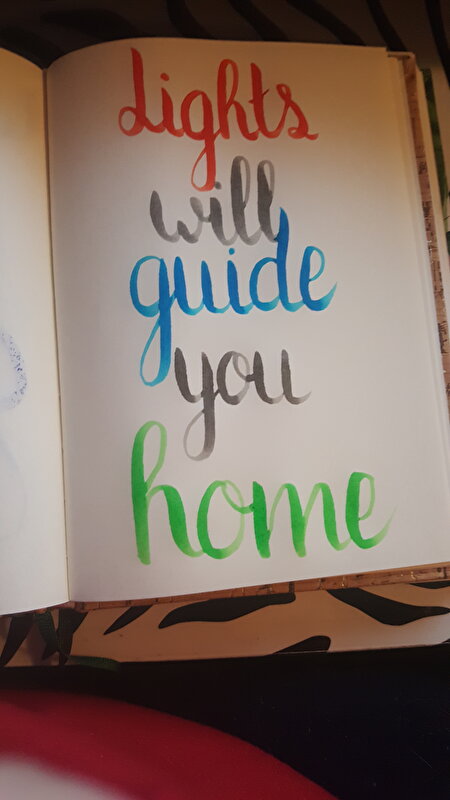 Lights
will
guide
you
home